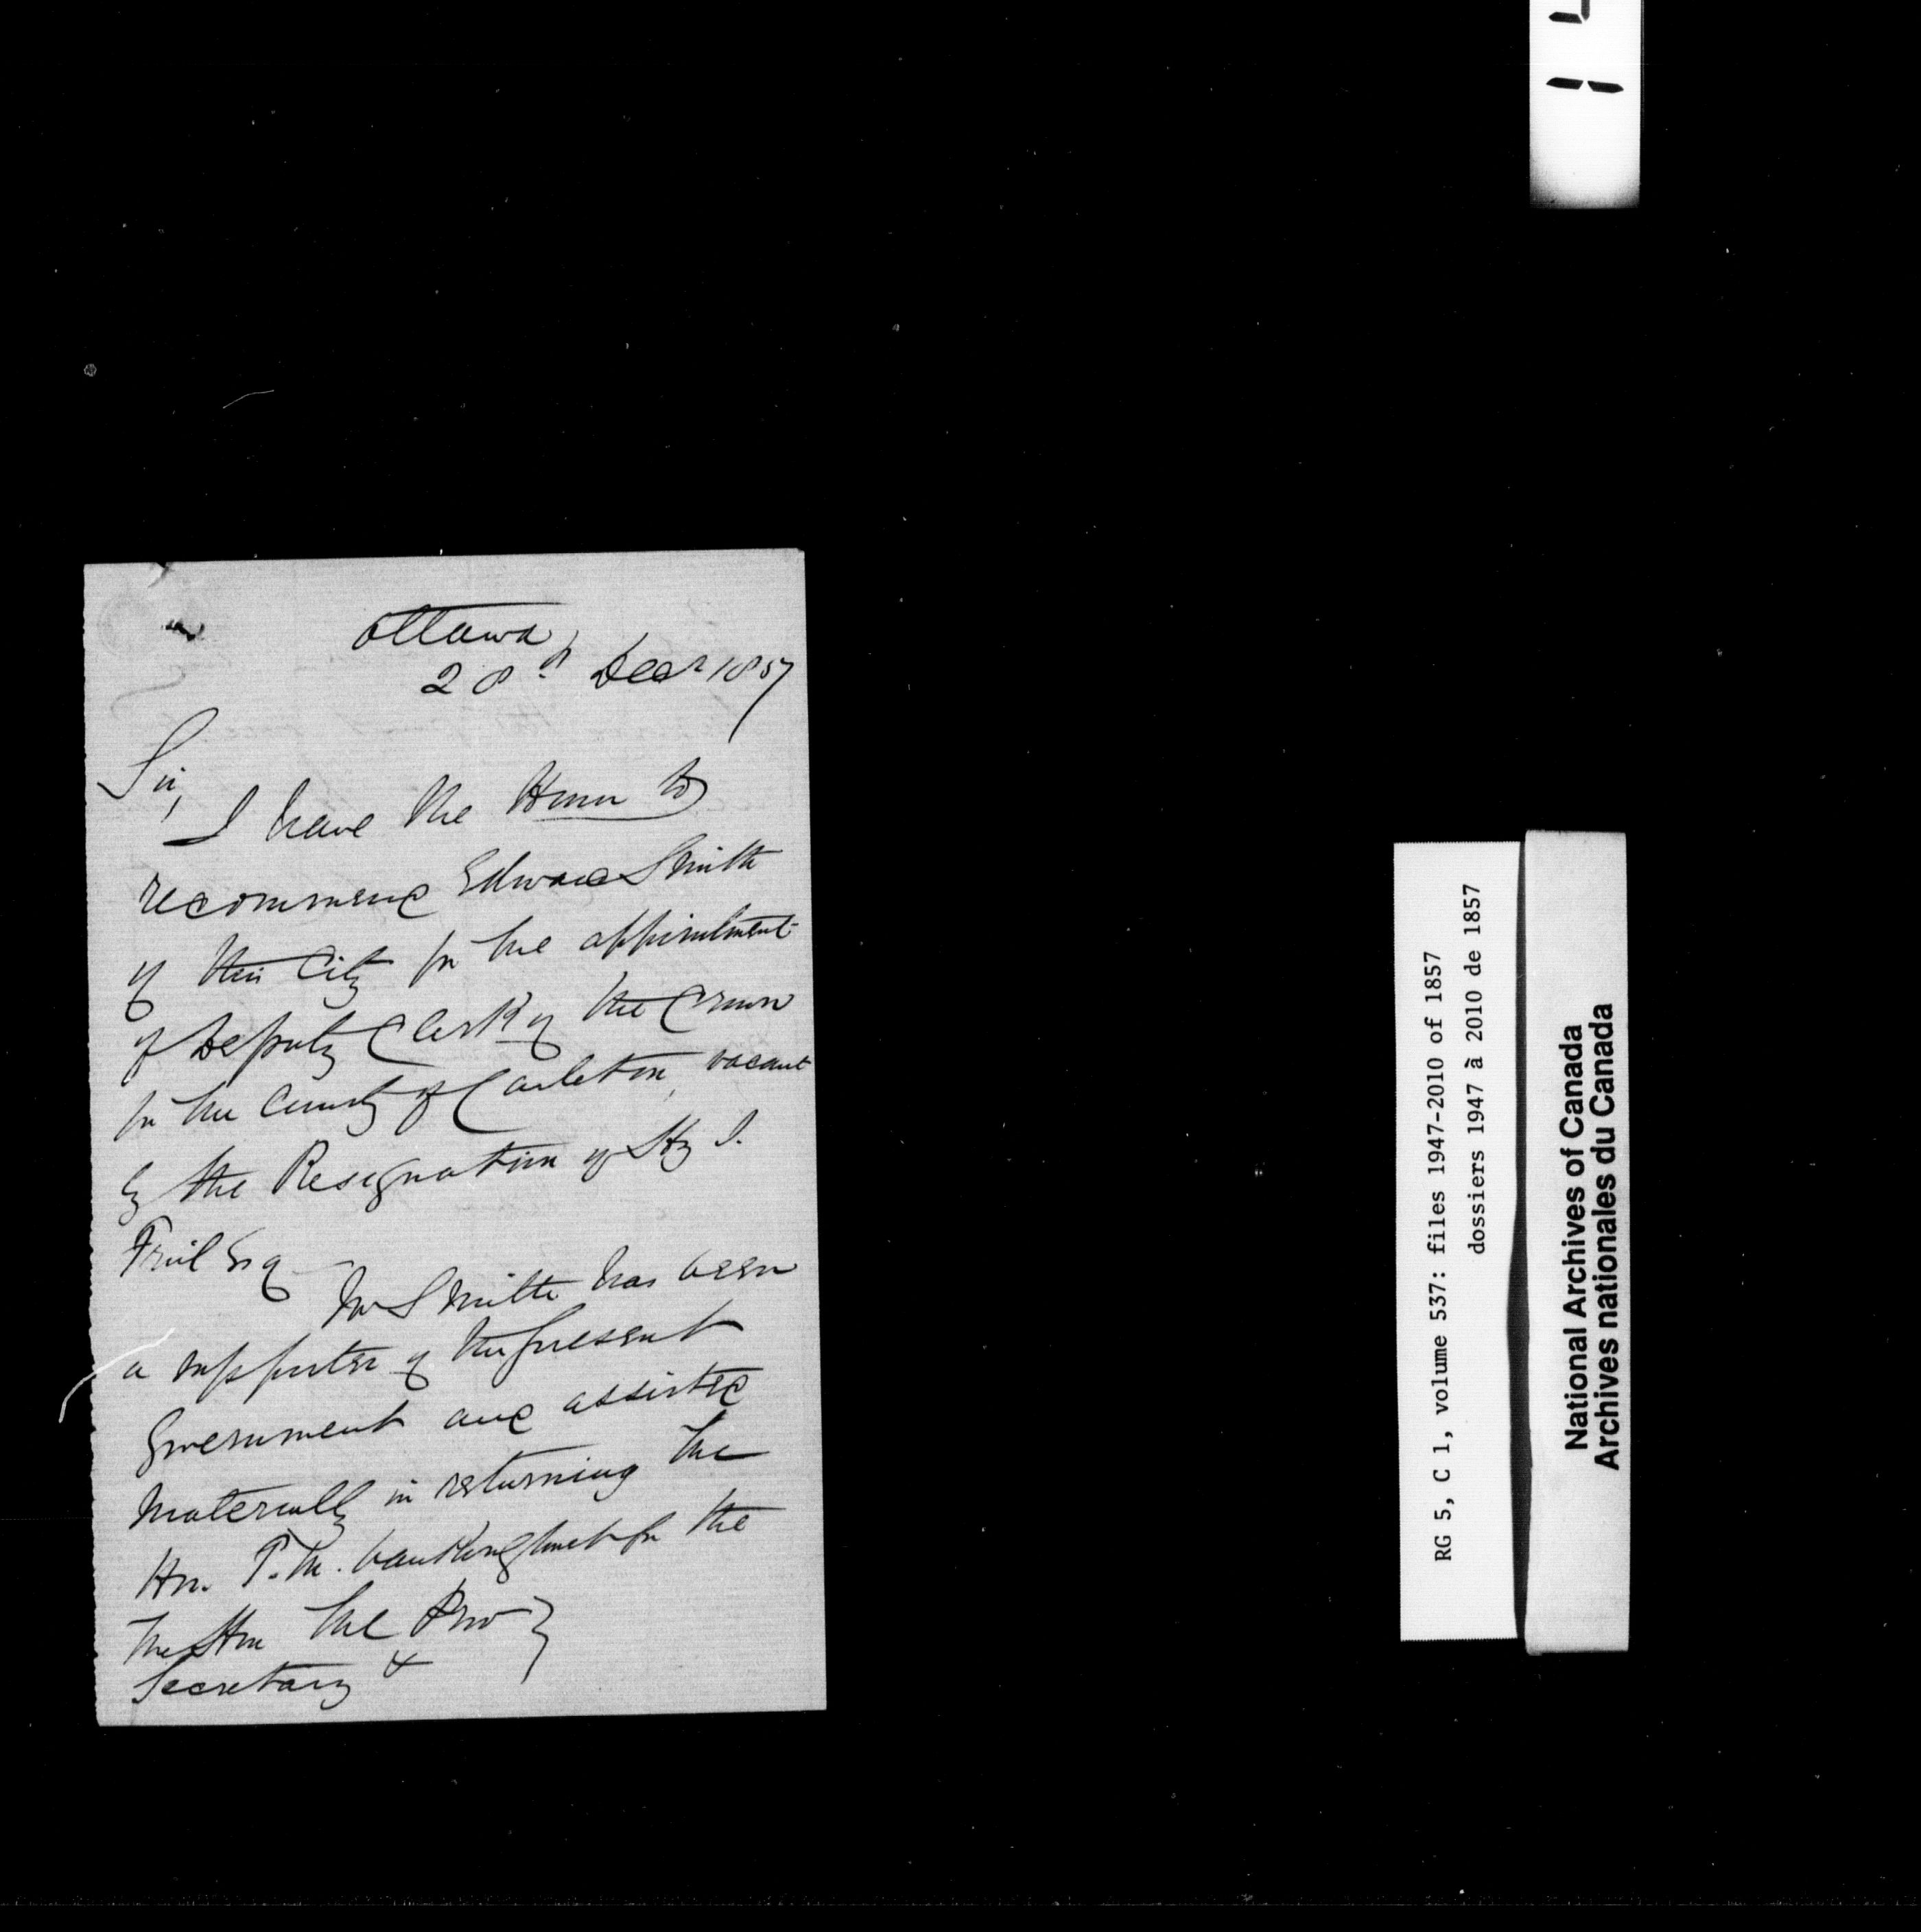 Ottawa
28th Decr 1857
Sir,
I have the Honor to
recommend Edward Smith
of this City for the appointment
of Deputy Clerk of the Crown
for the County of Carleton, vacant
by the Resignation of Hy J.
Friel Esq
Mr Smith has been
a supporter of the present
Government and assisted
Materially in returning the
Hon. P. M. Vankoughnet for the
The Hon The Prov
Secretary &
RG 5, C 1, volume 537: files 1947-2010 of 1857
dossiers 1947 à 2010 de 1857
National Archives of Canada
Archives nationales du Canada